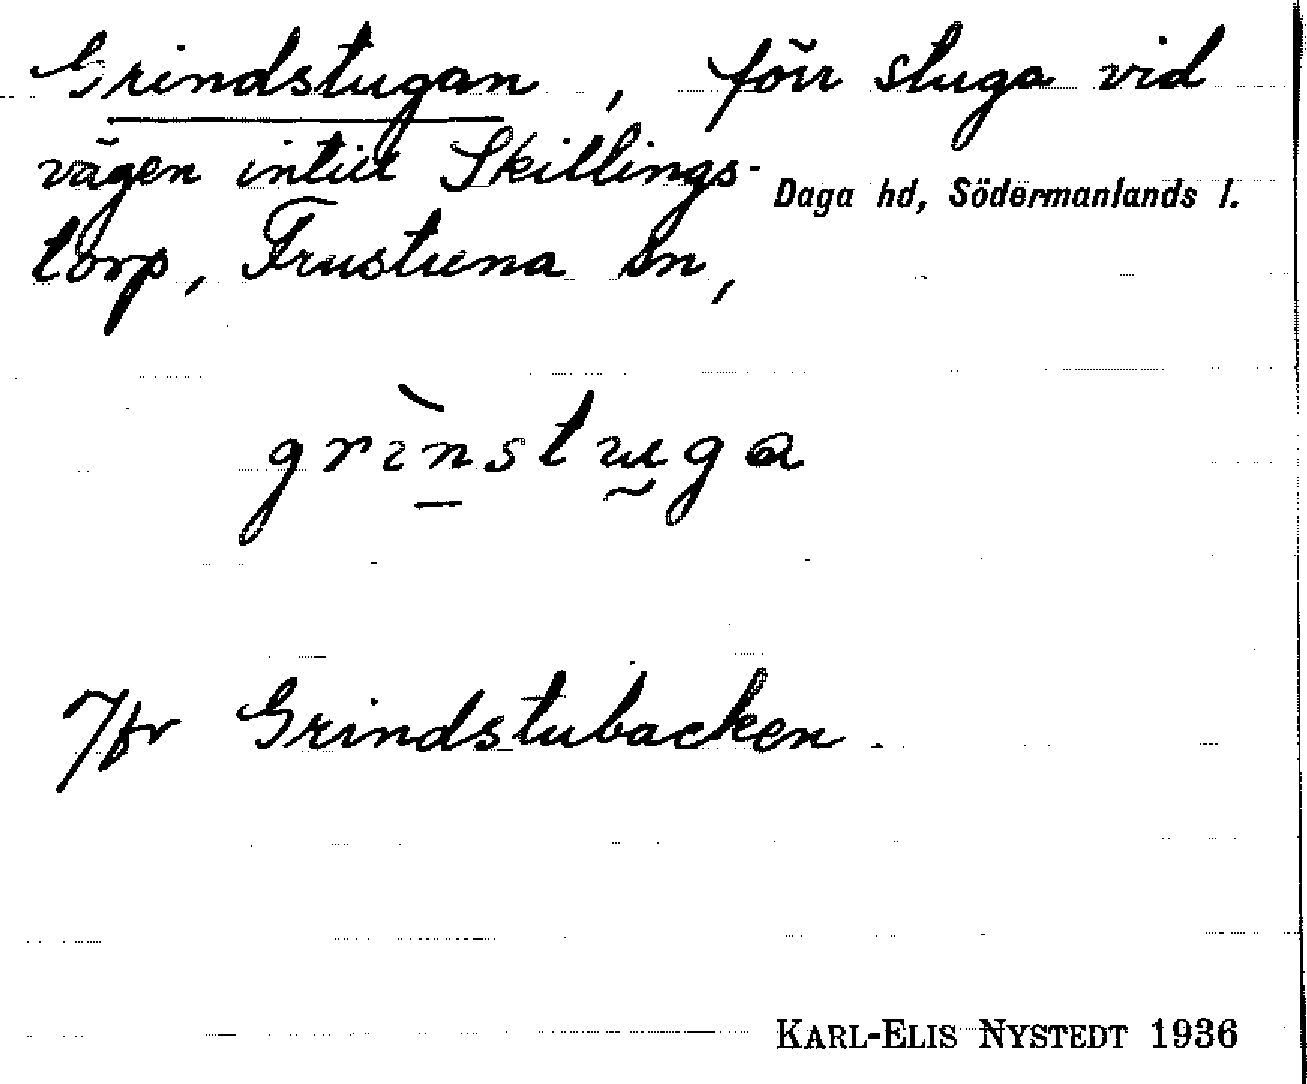 Grindstugan, förr stuga vid
vägen intill Skillings-
torp, Frustuna sn,
Daga hd, Södermanlands l.
grìnstuga
Jfr Grindstubacken.
KARL-ELIS NYSTEDT 1936